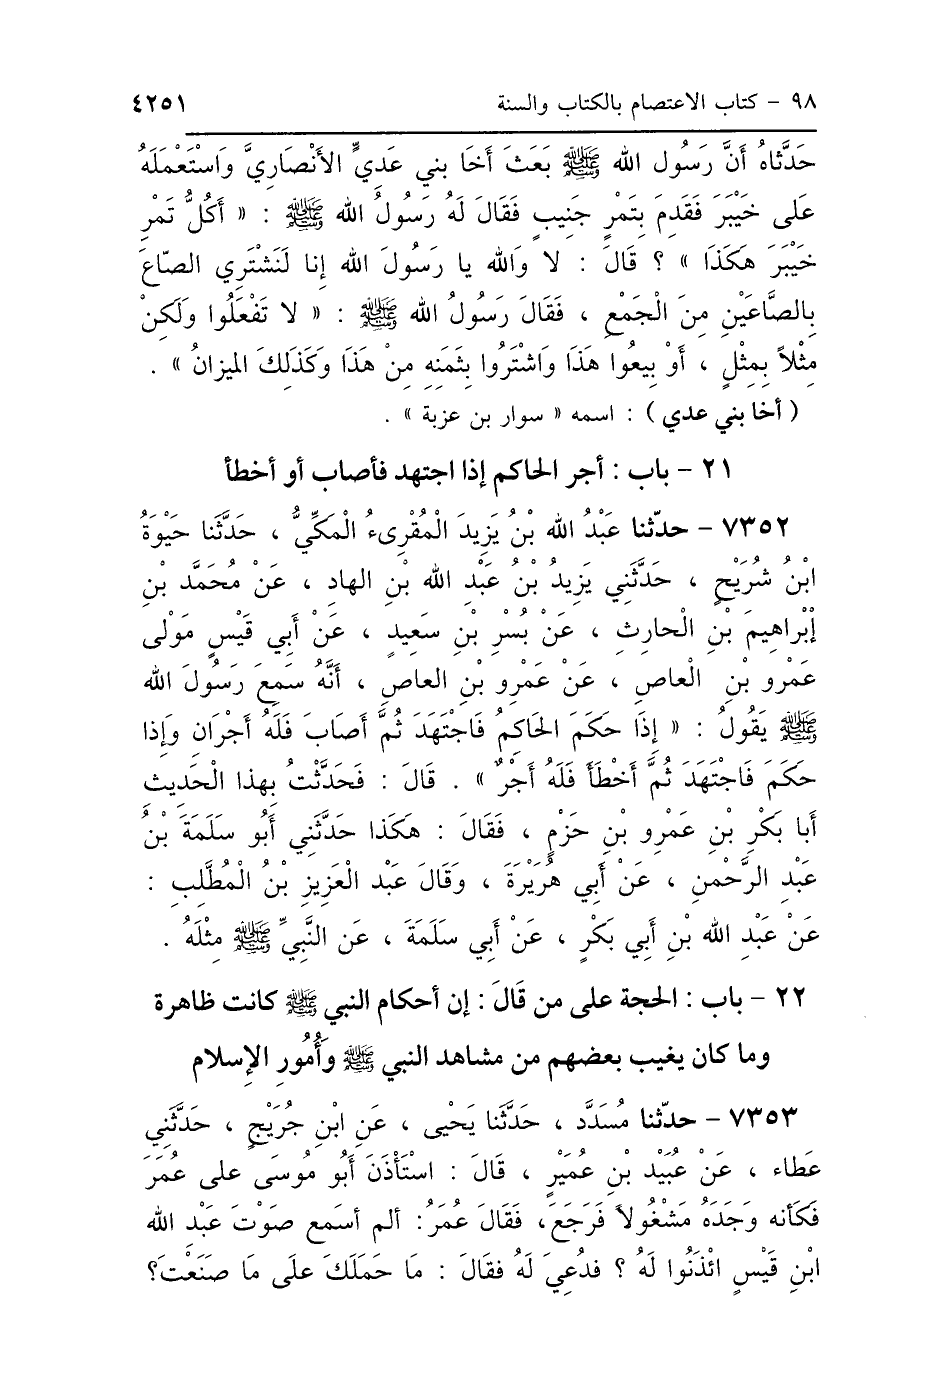 ٩٨ - كتاب الاعتصام بالكتاب والسنة ٤٢٥١
حَدَّثَاهُ أَنَّ رَسُول الله ﷺ بَعَثَ أَخَا بني عَدِيٍّ الأَنْصَارِيَّ وَاسْتَعْمَلَهُ
عَلى خَيْبَرَ فَقَدِمَ بِتَمْرٍ جَنِيبٍ فَقَالَ لَهُ رَسُولُ الله ﷺ : « أَكُلُّ تَمْرِ
خَيْبَرَ هَكَذَا » ؟ قَالَ : لا وَالله يا رَسُولَ الله إنا لَنَشْتَرِي الصّاعَ
بِالصَّاعَيْنِ مِنَ الْجَمْعِ ، فَقَالَ رَسُولُ الله ﷺ : « لا تَفْعَلُوا وَلَكِنْ
مِثْلاً بِمِثْلٍ ، أَوْ بِيعُوا هَذَا وَاشْتَرُوا بِثَمَنِهِ مِنْ هَذَا وَكَذَلِكَ المِيزانُ » .
( أخا بني عدي ) : اسمه « سوار بن عزبة » .
٢١ - باب : أجر الحاكم إذا اجتهد فأصاب أو أخطأ
٧٣٥٢ - حدّثنا عَبْدُ الله بْنُ يَزِيدَ الْمُقْرِىءُ الْمَكِّيُّ ، حَدَّثَنا حَيْوَةُ
ابْنُ شُرَيْحٍ ، حَدَّثَنِي يَزِيدُ بْنُ عَبْدِ الله بْنِ الهاد ، عَنْ مُحَمَّد بْنِ
إِبْراهِيمَ بْنِ الْحارِثِ ، عَنْ بُسْرِ بْنِ سَعِيدٍ ، عَنْ أَبِي قَيْسٍ مَوْلى
عَمْرو بْنِ الْعاصِ ، عَنْ عَمْرِو بْنِ العاصِ ، أَنَّهُ سَمِعَ رَسُولَ الله
ﷺ يَقُولُ : « إِذَا حَكَمَ الحَاكِمُ فَاجْتَهَدَ ثُمَّ أَصَابَ فَلَهُ أَجْرَانِ وَإِذا
حَكَمَ فَاجْتَهَدَ ثُمَّ أَخْطَأَ فَلَهُ أَجْرٌ » . قَالَ : فَحَدَّثْتُ بِهذا الْحَدِيث
أبا بَكْرِ بْنِ عَمْرِو بْنِ حَزْمٍ ، فَقَالَ : هكَذا حَدَّثَنِي أَبُو سَلَمَةَ بْنُ
عَبْدِ الرَّحْمنِ ، عَنْ أَبِي هُرَيْرَةَ ، وَقَالَ عَبْد الْعَزِيزِ بْنُ الْمُطَّلِبِ :
عَنْ عَبْدِ الله بْنِ أَبِي بَكْرٍ ، عَنْ أَبِي سَلَمَةَ ، عَن النَّبِيِّ ﷺ مِثْلَهُ .
٢٢ - باب : الحجة على من قَالَ : إن أحكام النبي ﷺ كانت ظاهرة
وما كان يغيب بعضهم من مشاهد النبي ﷺ وَأُمُورِ الإسلام
٧٣٥٣ - حدّثنا مُسَدَّد ، حَدَّثَنا يَحْيى ، عَنِ ابْنِ جُرَيْجٍ ، حَدَّثَنِي
عَطاء ، عَنْ عُبَيْد بْنِ عُمَيْرٍ ، قَالَ : اسْتَأْذَنَ أَبُو مُوسَى على عُمَرَ
فَكَأنه وَجَدَهُ مَشْغُولاً فَرَجَعَ، فَقالَ عُمَرُ: ألم أسمع صَوْتَ عبد الله
ابْنِ قَيْسٍ ائْذَنُوا لَهُ ؟ فدُعِيَ لَهُ فقالَ : مَا حَمَلَكَ علَى ما صَنَعْتَ؟